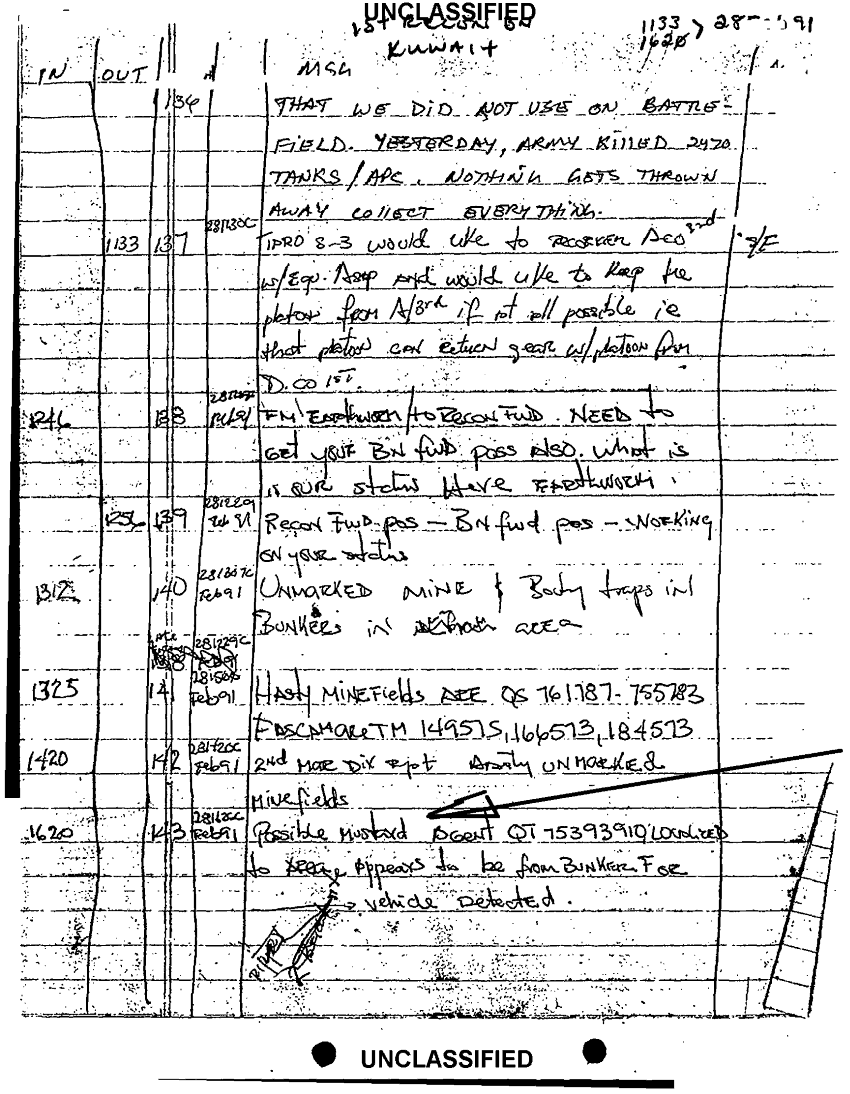 UNCLASSIFIED
1ST RECON BN
KUWAIT
1133 > 28 91
1620
IN OUT MSG
136 THAT WE DID NOT USE ON BATTLE-
FIELD. YESTERDAY, ARMY KILLED 2470
TANKS/APC. NOTHING GETS THROWN
AWAY COLLECT EVERYTHING.
1133 137 281130C would like to A co 3rd S/E
w/Equ. Asap and would like to keep the
platoon from A/3rd if at all possible ie
that platoon can return gear w/platoon from
D. CO 1ST.
1246 138 Feb91 FM EARTHWORM/TO RECON FWD. NEED to
GET YOUR BN FWD POSS ALSO. What is
is OUR status Here EARTHWORM.
1256 139 Feb 91 RECON FWD pos – BN fwd pos – WORKING
ON YOUR status
1312 140 281307C Feb91 UNMARKED MINE & Body traps in
BUNKERS in area
281229C
1325 141 Feb91 HASTY MINEFIELDS ARE QS 761787- 755783
149575, 166573, 184573
1420 142 281420C Feb91 2nd MAR DIV rpt UNMARKED
Minefields
1620 143 Feb91 Possible Mustard AGENT QT 75393910 LOCALIZED
to appears to be from BUNKER. FOX
vehicle DETECTED.
UNCLASSIFIED